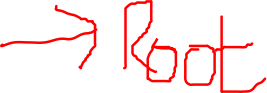 → Root